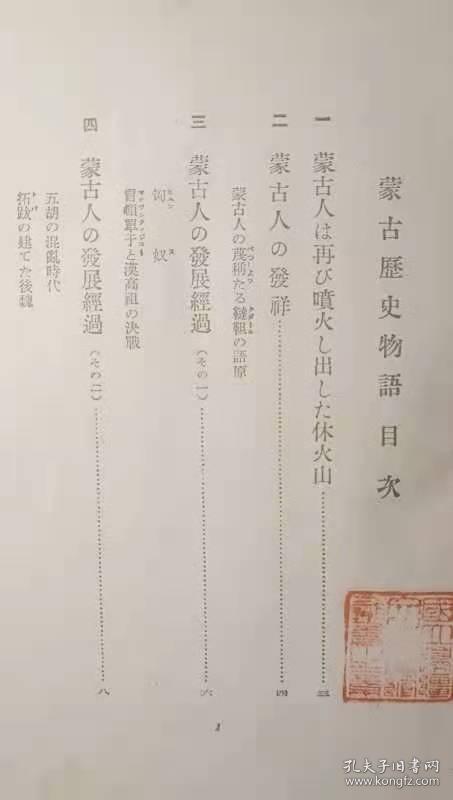 蒙古歷史物語目次
一 蒙古人は再び噴火し出した休火山……三
二 蒙古人の發祥……四
蒙古人の蔑稱たる韃靼の語原
三 蒙古人の發展經過（その一）……六
匈奴
冒頓單于と漢高祖の決戰
四 蒙古人の發展經過（その二）……八
五胡の混亂時代
拓跋の建てた後魏
1
孔夫子旧书网
www.kongfz.com